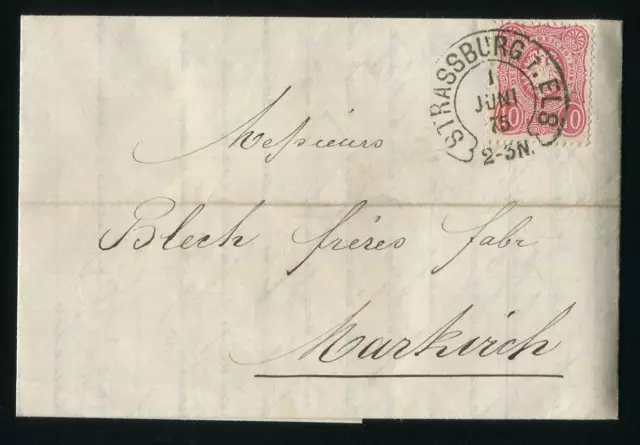 STRASSBURG i. ELS.
1
JUNI
75
2-3N.
10 10
Messieurs
Blech frères fabr
Markirch